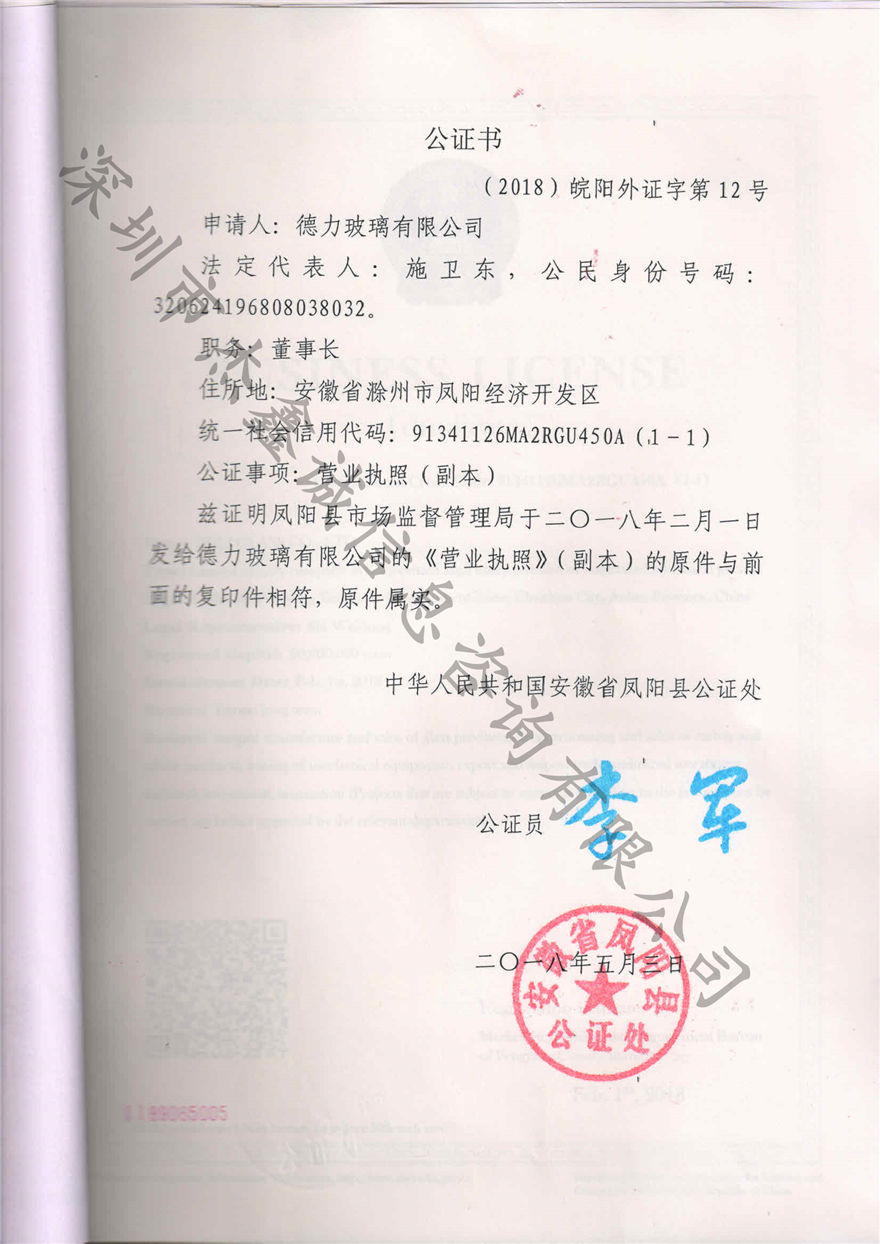 公证书
（2018）皖阳外证字第12号
申请人：德力玻璃有限公司
法定代表人：施卫东，公民身份号码：
320624196808038032。
职务：董事长
住所地：安徽省滁州市凤阳经济开发区
统一社会信用代码：91341126MA2RGU450A（1－1）
公证事项：营业执照（副本）
兹证明凤阳县市场监督管理局于二〇一八年二月一日
发给德力玻璃有限公司的《营业执照》（副本）的原件与前
面的复印件相符，原件属实。
中华人民共和国安徽省凤阳县公证处
公证员 李军
二〇一八年五月三日
安徽省凤阳县
公证处
深圳市杰鑫诚信息咨询有限公司
BUSINESS LICENSE